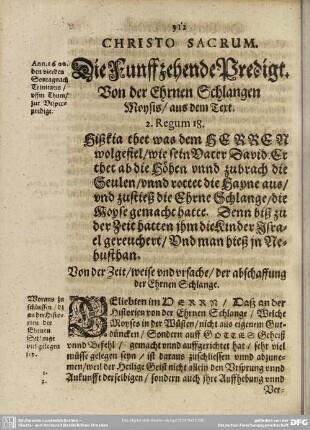 912
CHRISTO SACRUM.
Ann. 1600.
den vierden
Sontagnach
Trinitatis /
vffm Thum /
zur Vesper
predigt.
Die Funffzehende Predigt.
Von der Ehrnen Schlangen
Moysis / aus dem Text.
2. Regum 18.
Hißkia thet was dem HERREN
wolgefiel / wie sein Vater David. Er
thet ab die Höhen vnnd zubrach die
Seulen / vnnd rottet die Hayne aus /
vnd zustieß die Ehrne Schlange / die
Moyse gemacht hatte. Denn biß zu
der Zeit hatten ihm die Kinder Isra-
el gereuchert / Vnd man hieß jn Ne-
husthan.
Von der Zeit / weise vnd vrsache / der abschaffung
der Ehrnen Schlange.
Woraus zu
schliessen / dz
an der Histo-
rien der
Ehrnen
viel gelegen
sey.
1.
2.
GEliebten im HERRN / Daß an der
Historien von der Ehrnen Schlange / Welche
Moyses in der Wüsten / nicht aus eigenem Gut-
düncken / Sondern auff GOTTES Geheiß
vnnd Befehl / gemacht vnnd auffgerichtet hat / sehr viel
müsse gelegen seyn / ist daraus zuschliessen vnnd abzune-
men / weil der Heilige Geist nicht allein den Vrsprung vnnd
Ankunfft derselbigen / sondern auch ihre Auffhebung vnnd
Ver-